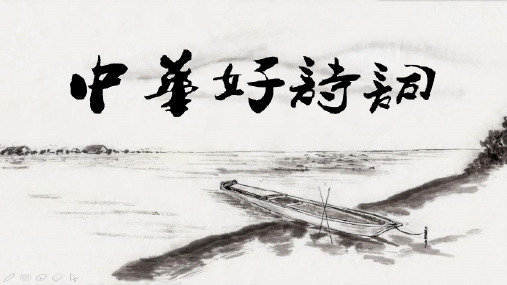 中華好詩詞